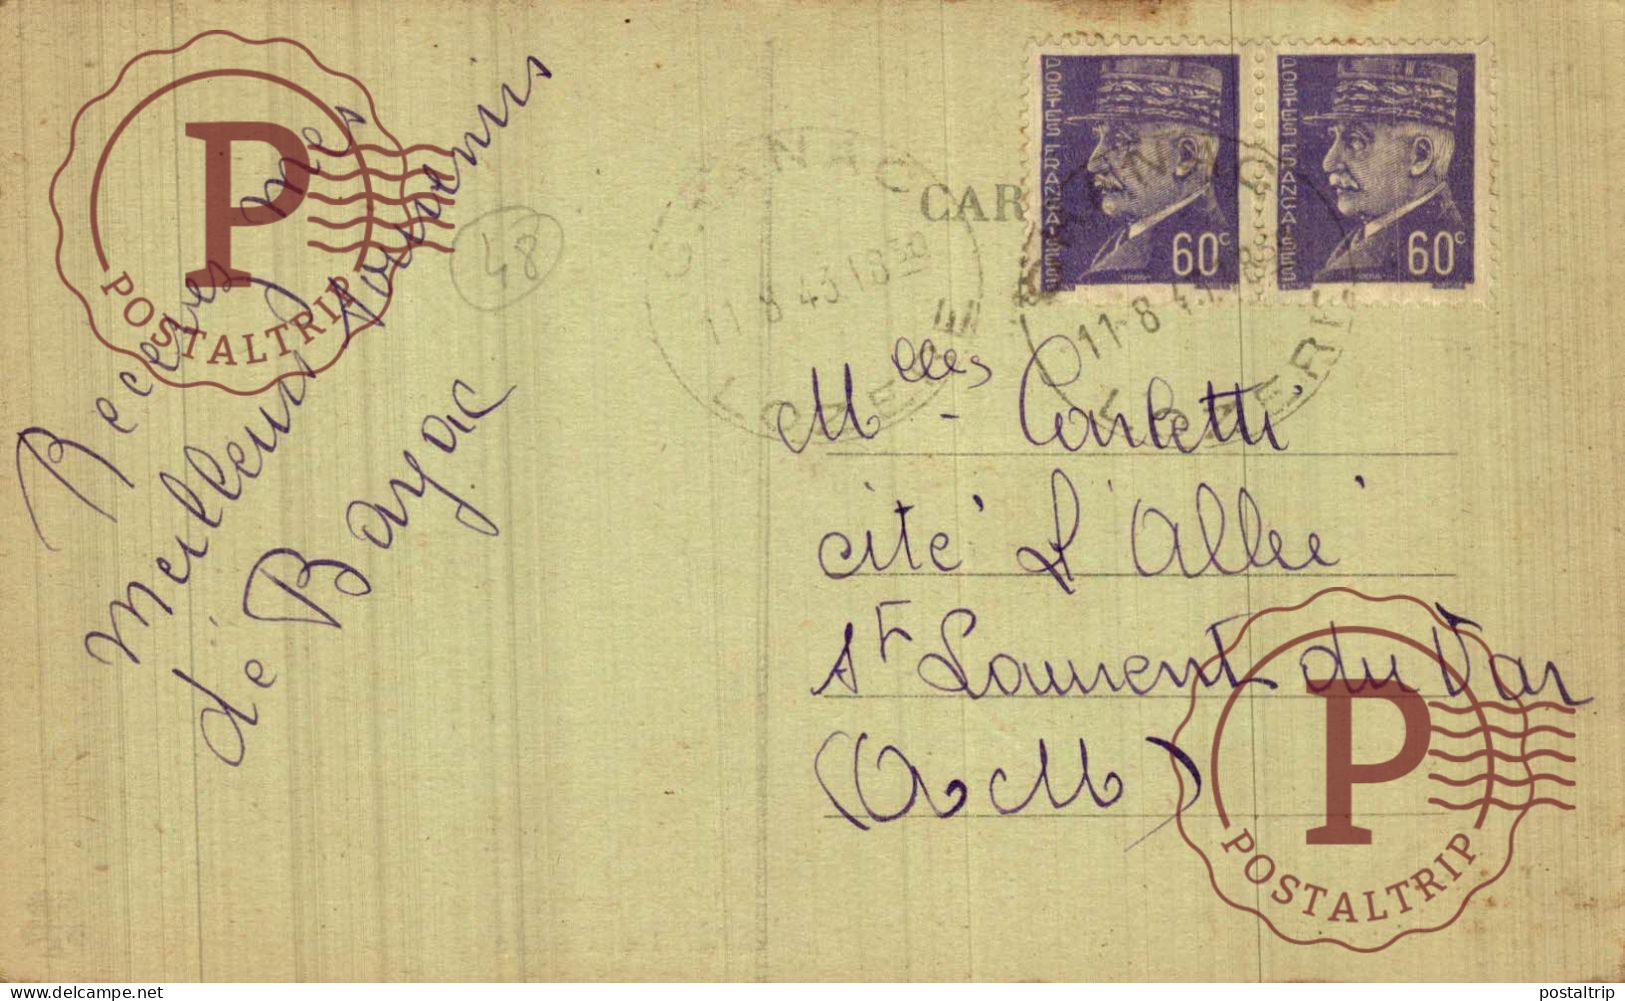 Recevez mes
meilleurs souvenirs
de Bayac
48
CAR
POSTES FRANÇAISES
60c
POSTES FRANÇAISES
60c
11-8 43 18 30
LOZERE
11-8 4
LOZERE
Melles Carletti
cité L'Allée
St Laurent du Var
(A M)
P
POSTALTRIP
P
POSTALTRIP
www.delcampe.net
postaltrip